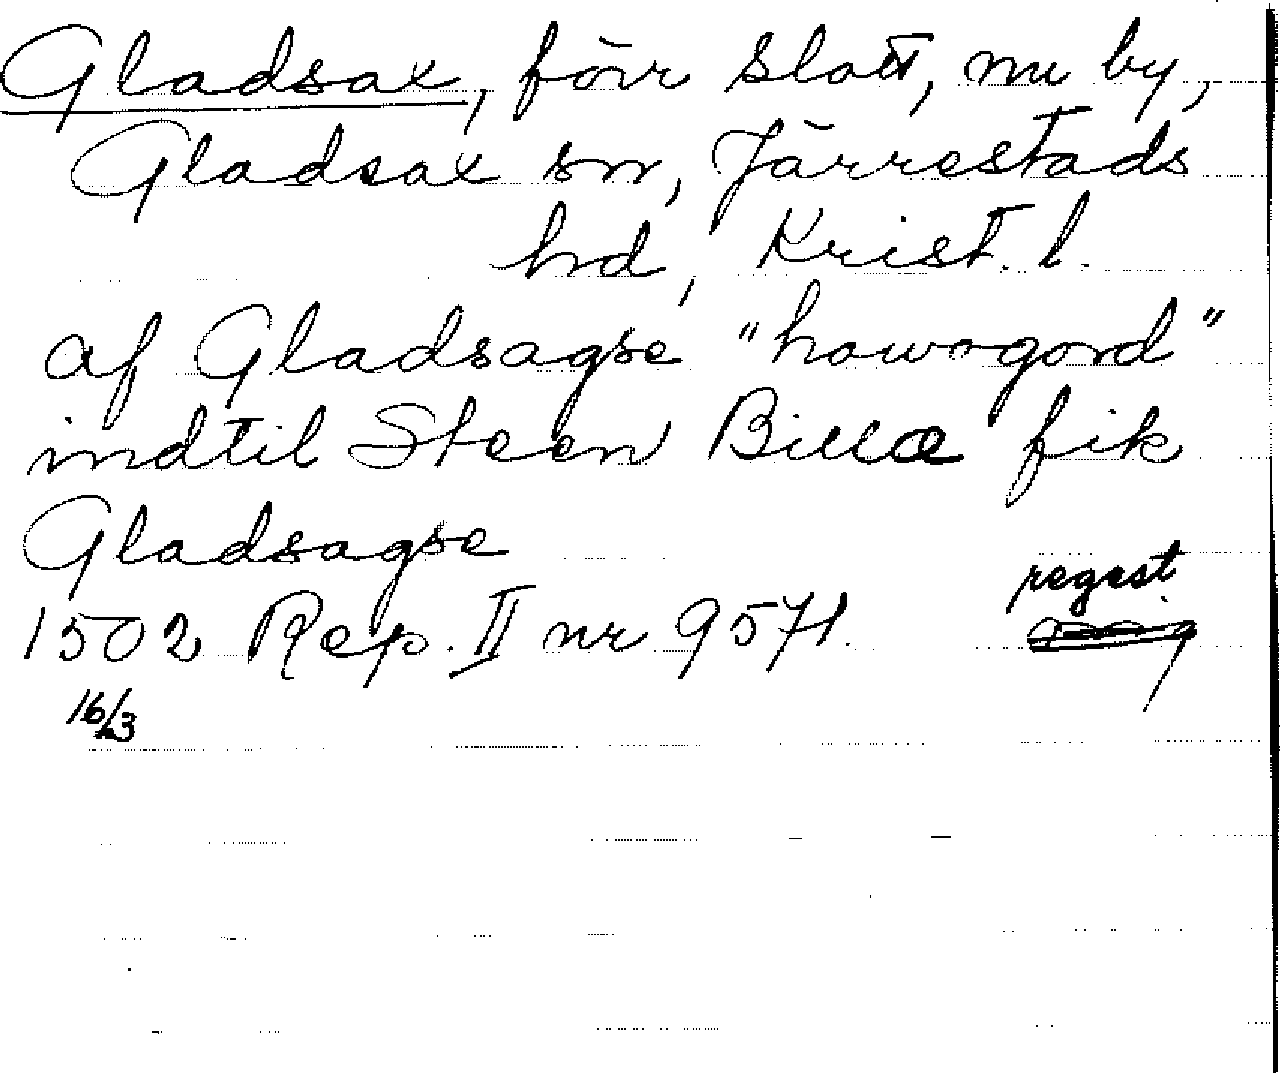 Gladsax, förr slott, nu by,
Gladsax sn, Järrestads
hd, Krist. l.
af Gladsagse "howogord"
indtil Steen Billæ fik
Gladsagse
regest.
1502 Rep. II nr 9571.
16/3